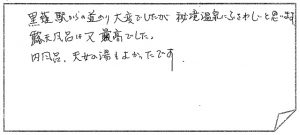 黒薙駅からの道のり大変でしたが秘境温泉にふさわしいと思います
露天風呂は又最高でした。
内風呂、天女の湯もよかったです